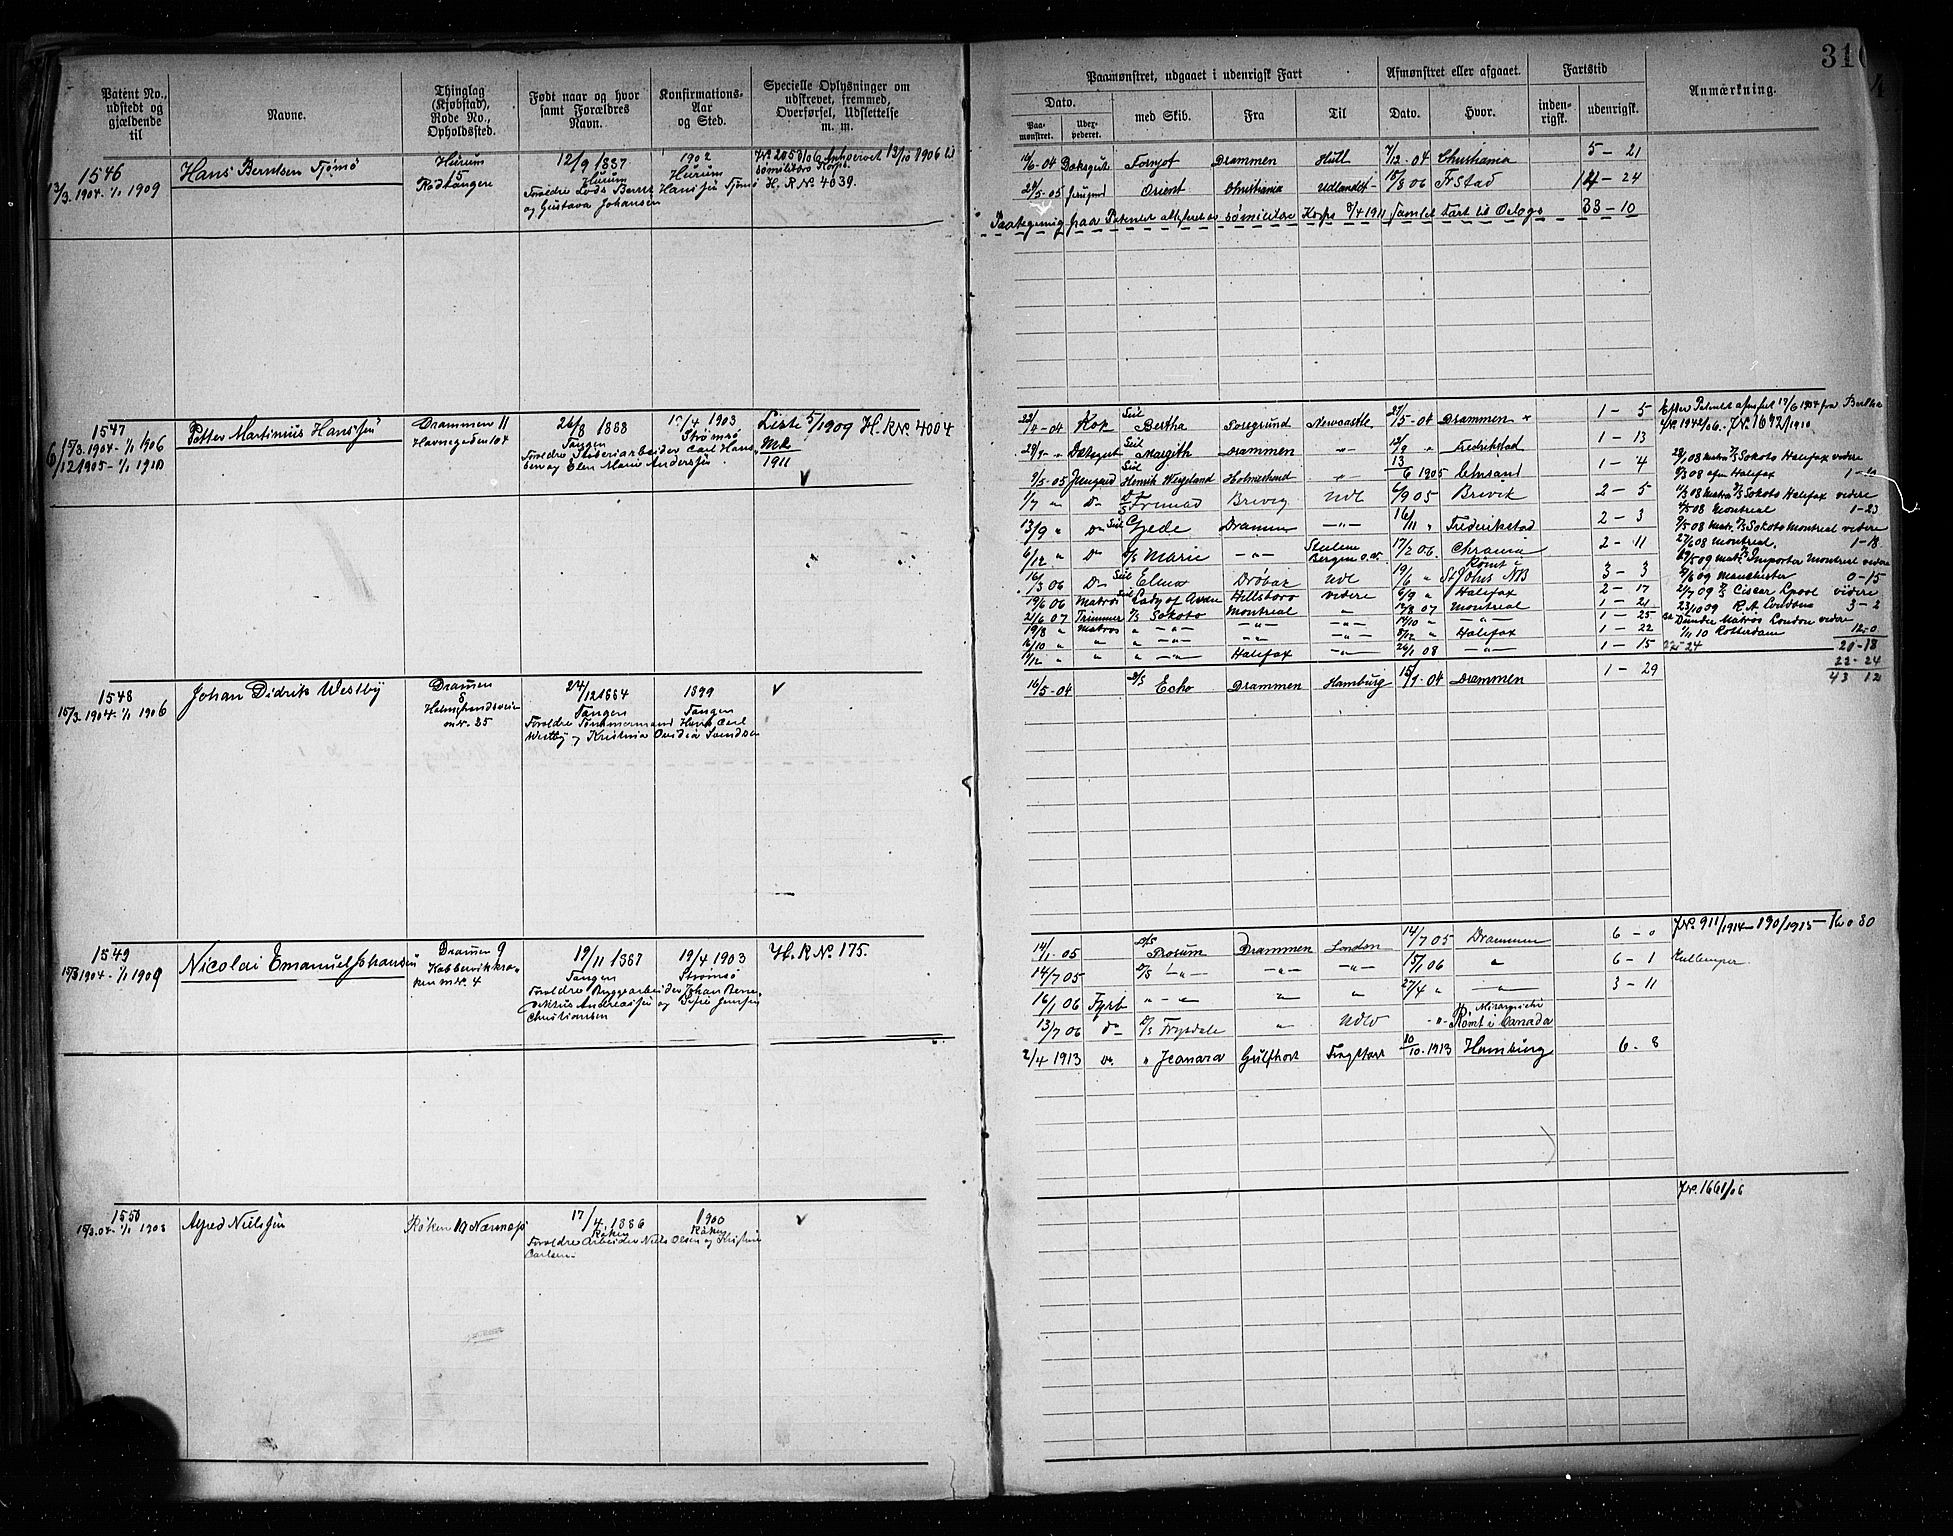 Patent No., udstedt og gjældende til
Navne.
Thinglag (Kjøbstad), Rode No., Opholdssted.
Født naar og hvor samt Forældres Navn.
Konfirmations-Aar og Sted.
Specielle Oplysninger om udskrevet, fremmed, Overførsel, Udslettelse m. m.
1546
1904 - 1/1 1909
Hans Berntsen Tjømø
Hurum
15
Rødtangen
12/9 1887
Hurum
Foreldre Lods Bernt Hansen Tjømø
og Gustava Johansen
1902
Hurum
12/10 1906 til
H. R No 4039.
1547
15/3 1904 - 1/1 1906
6/12 1905 - 1/1 1910
Petter Martinius Hanssen
Drammen 11
Havnegaden 104
26/8 1888
Tangen
Foreldre Støberiarbeider Carl Hans-
sen og Elen Marie Anderssen
/4 1903
Strømsø
Liste 5/1909 H. R No. 4004
Mk
1911
v
1548
15/3 1904 - 1/1 1906
Johan Didrik Westby
Drammen
8
nr. 25
24/12 1884
Tangen
Foreldre Tømmermand Hans Carl
Westby og Kristina Ovidia Svendsen
1899
Tangen
v
1549
15/3 1904 - 1/1 1909
Nicolai Emanuel Johansen
Drammen 9
Kobberviksbak-
ken nr. 4
19/11 1887
Tangen
Foreldre Bryggearbeider Johan Bene-
diktus Andreassen og
Christiansen
19/4 1903
Strømsø
H. R No. 175.
1550
15/3.04 - 1/1 1908
Alfred Nielssen
Røken 10 Nærsnes
17/4. 1886
Røken
Foreldre Arbeider Niels Olsen og Kristine
Carlsen
1900
Røken
v
31
Paamønstret, udgaaet i udenrigsk Fart
Afmønstret eller afgaaet.
Fartstid
Anmærkning.
Dato.
Paa-mønstret.
med Skib.
Fra
Til
Dato.
Hvor.
inden-rigsk.
udenrigsk.
16/6 - 04 Dæksgut Fornjot Drammen Hull 7/12 - 04 Christiania 5 - 21
24/5 - 05 Jungmd Orient Christiania Udlandet 15/8 06 Frstad 14 - 24
Paategning paa Patentet /4 1911 Samlet Fart til Oslogs 33 - 10
22/4 - 04 Kok Seil Bertha Porsgrund Newcastle 27/5 - 04 Drammen 1 - 5
Dæksgut Seil Margith Drammen -"- 12/9 " Fredrikstad 1 - 13
9/5 - 05 Jungmd Seil Henrik Wergeland Holmestrand " 13/6 1905 Chrsand 1 - 4
1/7 " Do Brevig Udl 6/9 05 Brevik 2 - 5
13/9 " Do Seil Gjede Drammen -"- 16/11 " Frederikstad 2 - 3
6/12 " Do D/S Marie -"- Bergen 17/2 06 Chrania 2 - 11
16/3 06 Do Seil Elma Drøbak Udl 19/6 " Rømt i St Johns NB 3 - 3
19/6 06 Matros Seil Lady of Hillsboro videre 6/9 " Halifax 2 - 17
21/6 07 Trimmer D/S Sokoto Montreal " 17/8 07 Montreal 1 - 21
19/8 " Matros " -"- -"- -"- 14/10 " -"- 1 - 25
16/10 " " " -"- -"- -"- 5/12 " Halifax 1 - 22
14/12 " " " -"- Halifax -"- 26/1 08 -"- 1 - 15
Efter Patentet afmønstret 17/6 1904 fra Bertha
Jr. 1942/06. Jr. 1672/1910
Sokoto Halifax videre
Halifax
Sokoto Halifax videre
4/5 08 Montreal 1 - 23
9/5 08 matr. D/S Sokoto Montreal videre
27/6 08 Montreal. 1 - 18
Importer Montreal videre
Manchester 0 - 15
videre
23/10 09 3 - 2
Dunder Matros London videre
1/11 10 Rotterdam 12 - 0
22 - 24 20 - 18
22 - 24
43 12
16/5 - 04 D/S Echo Drammen Hamburg 15/7 - 04 Drammen 1 - 29
14/1 - 05 D/S Protum Drammen London 14/7 05 Drammen 6 - 0
14/7 05 D/S -"- -"- -"- 15/1 06 " 6 - 1
16/1 06 Fyrb " -"- " " 27/4 " -"- 3 - 11
13/7 06 do D/S Frysdale " Udlo -"- Rømt i Canada
2/4 1913 do. " Jeanara Gulfport 10/10 - 1913 Hamburg 6 - 8
Jr. 911/1914 - 190/1915 -
Jr. 1661/06